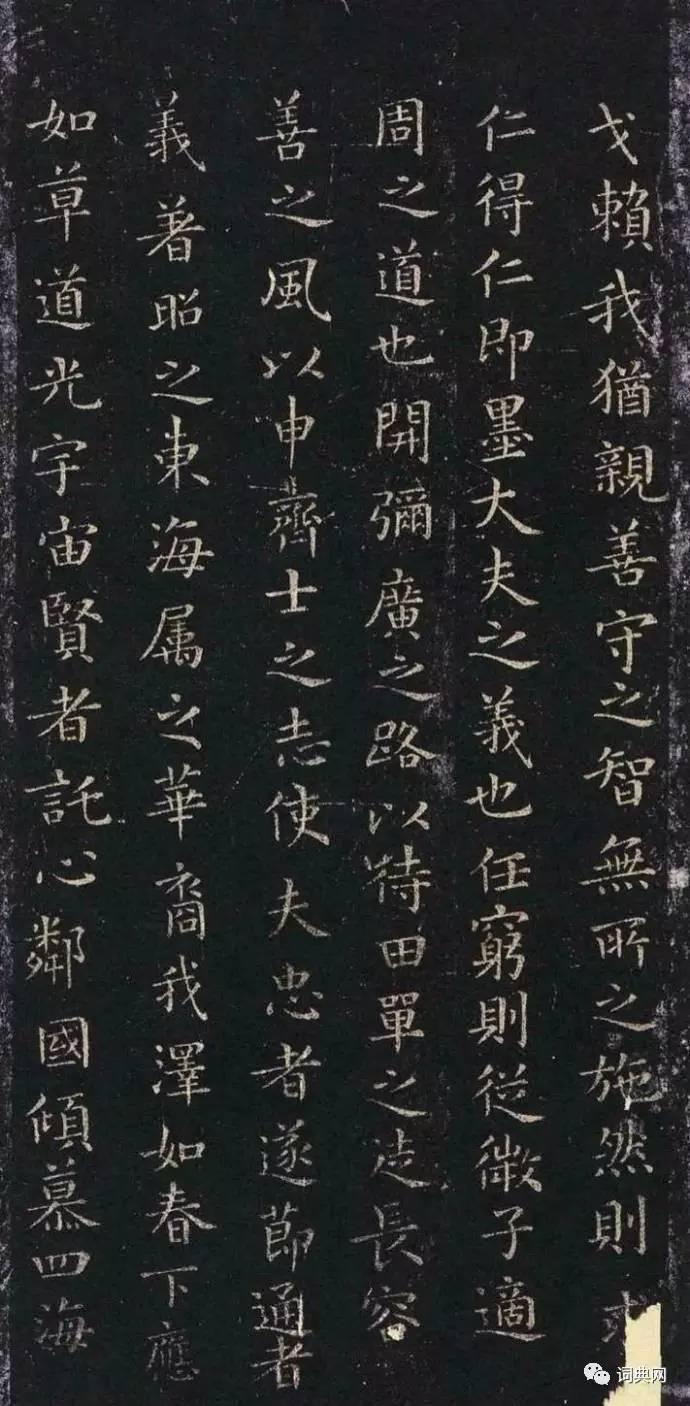 戈賴我猶親善守之智無所之施然則求
仁得仁即墨大夫之義也任窮則從微子適
周之道也開彌廣之路以待田單之徒長容
善之風以申齊士之志使夫忠者遂節通者
義著昭之東海属之華裔我澤如春下應
如草道光宇宙賢者託心鄰國傾慕四海
词典网